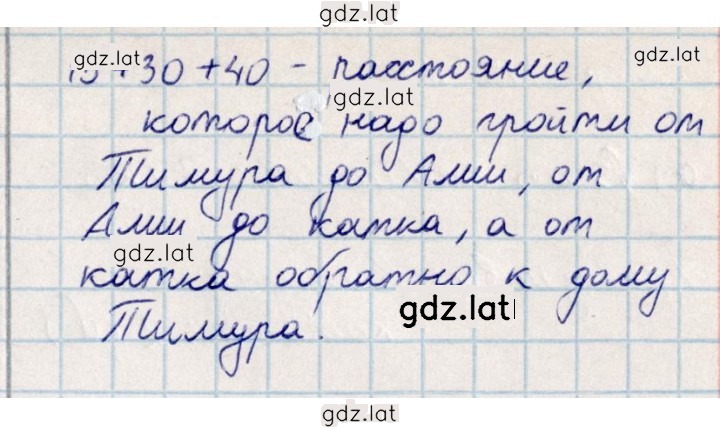 gdz.lat
gdz.lat gdz.lat
+30+40 - расстояние,
gdz.lat
которое надо пройти от
Тимура до Алии, от
Алии до катка, а от
gdz.lat
катка обратно к дому
gdz.lat
Тимура.
gdz.lat